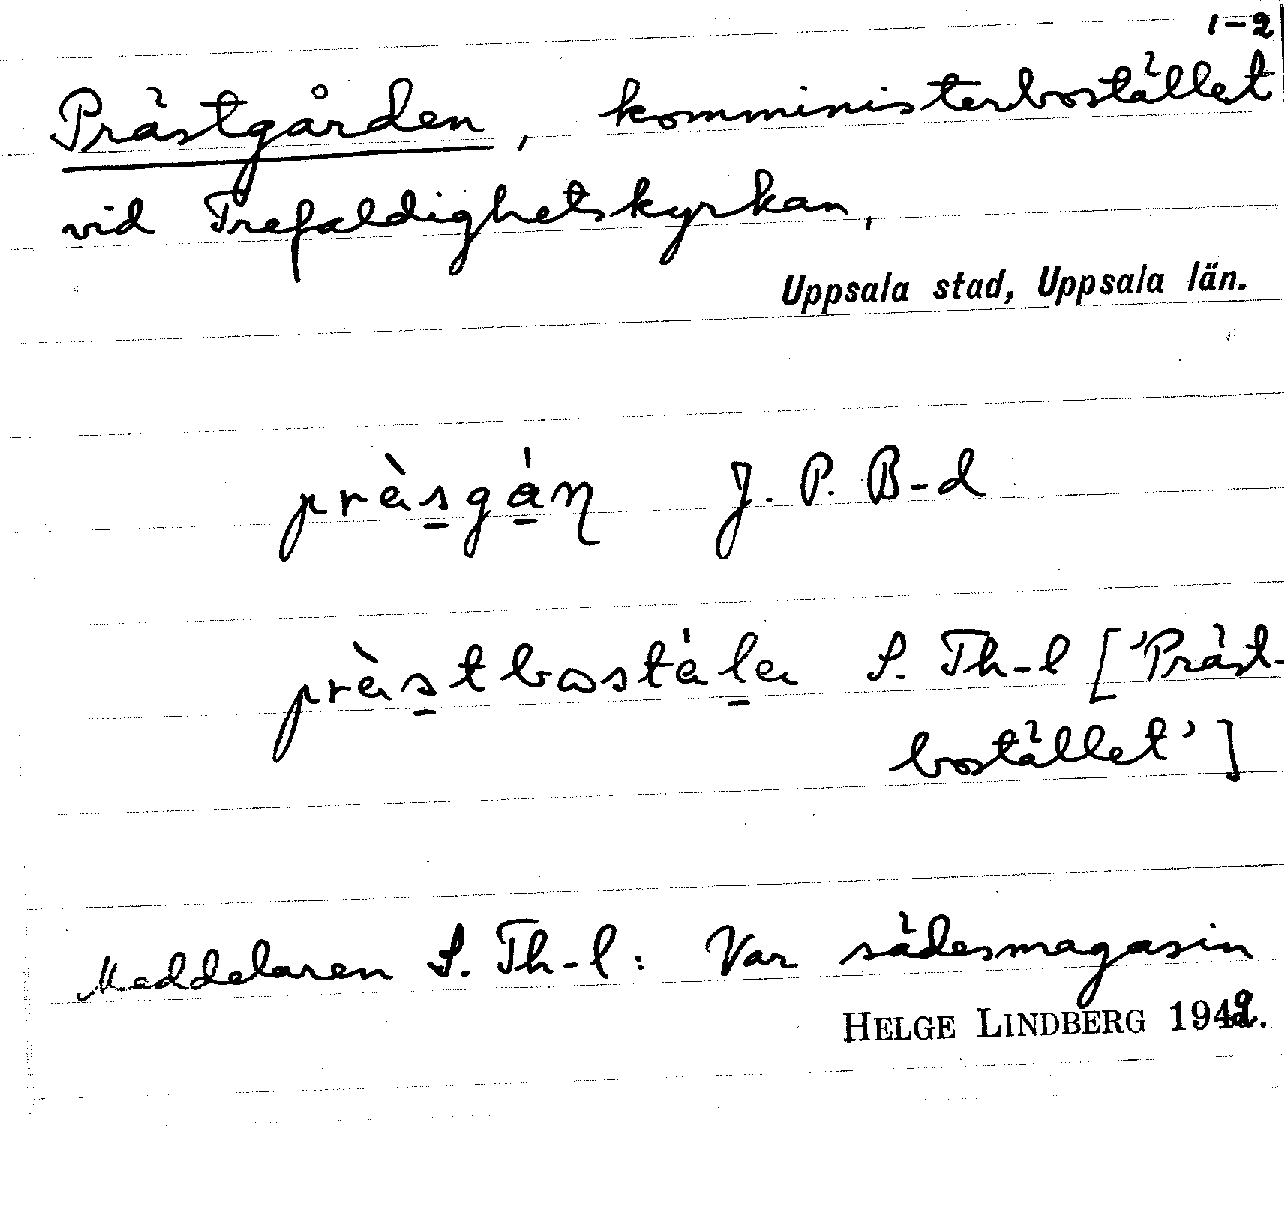 1-2
Prästgården, komministerbostället
vid Trefaldighetskyrkan,
Uppsala stad, Uppsala län.
prèsgán J. P. B-d
prèstbostèler S. Th-l ['Präst-
bostället']
Meddelaren S. Th-l: Var sädesmagasin
HELGE LINDBERG 1942.